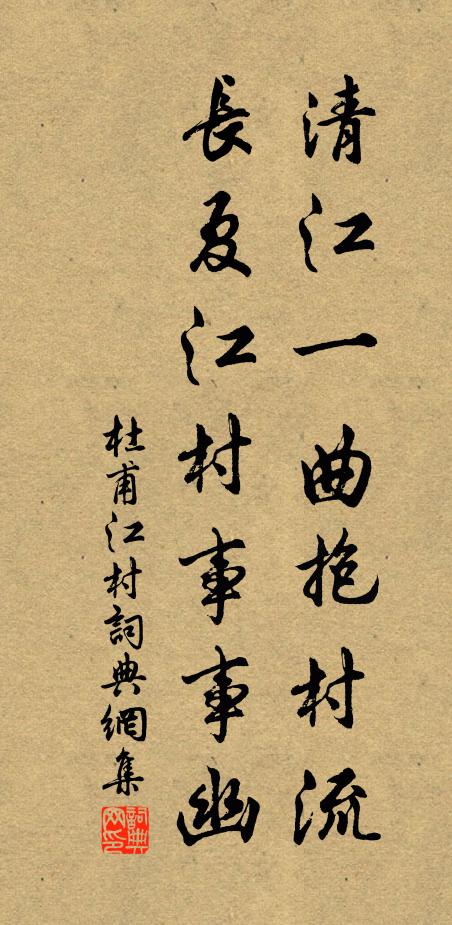 清江一曲抱村流
長夏江村事事幽
杜甫江村詞典網集
詞典网印